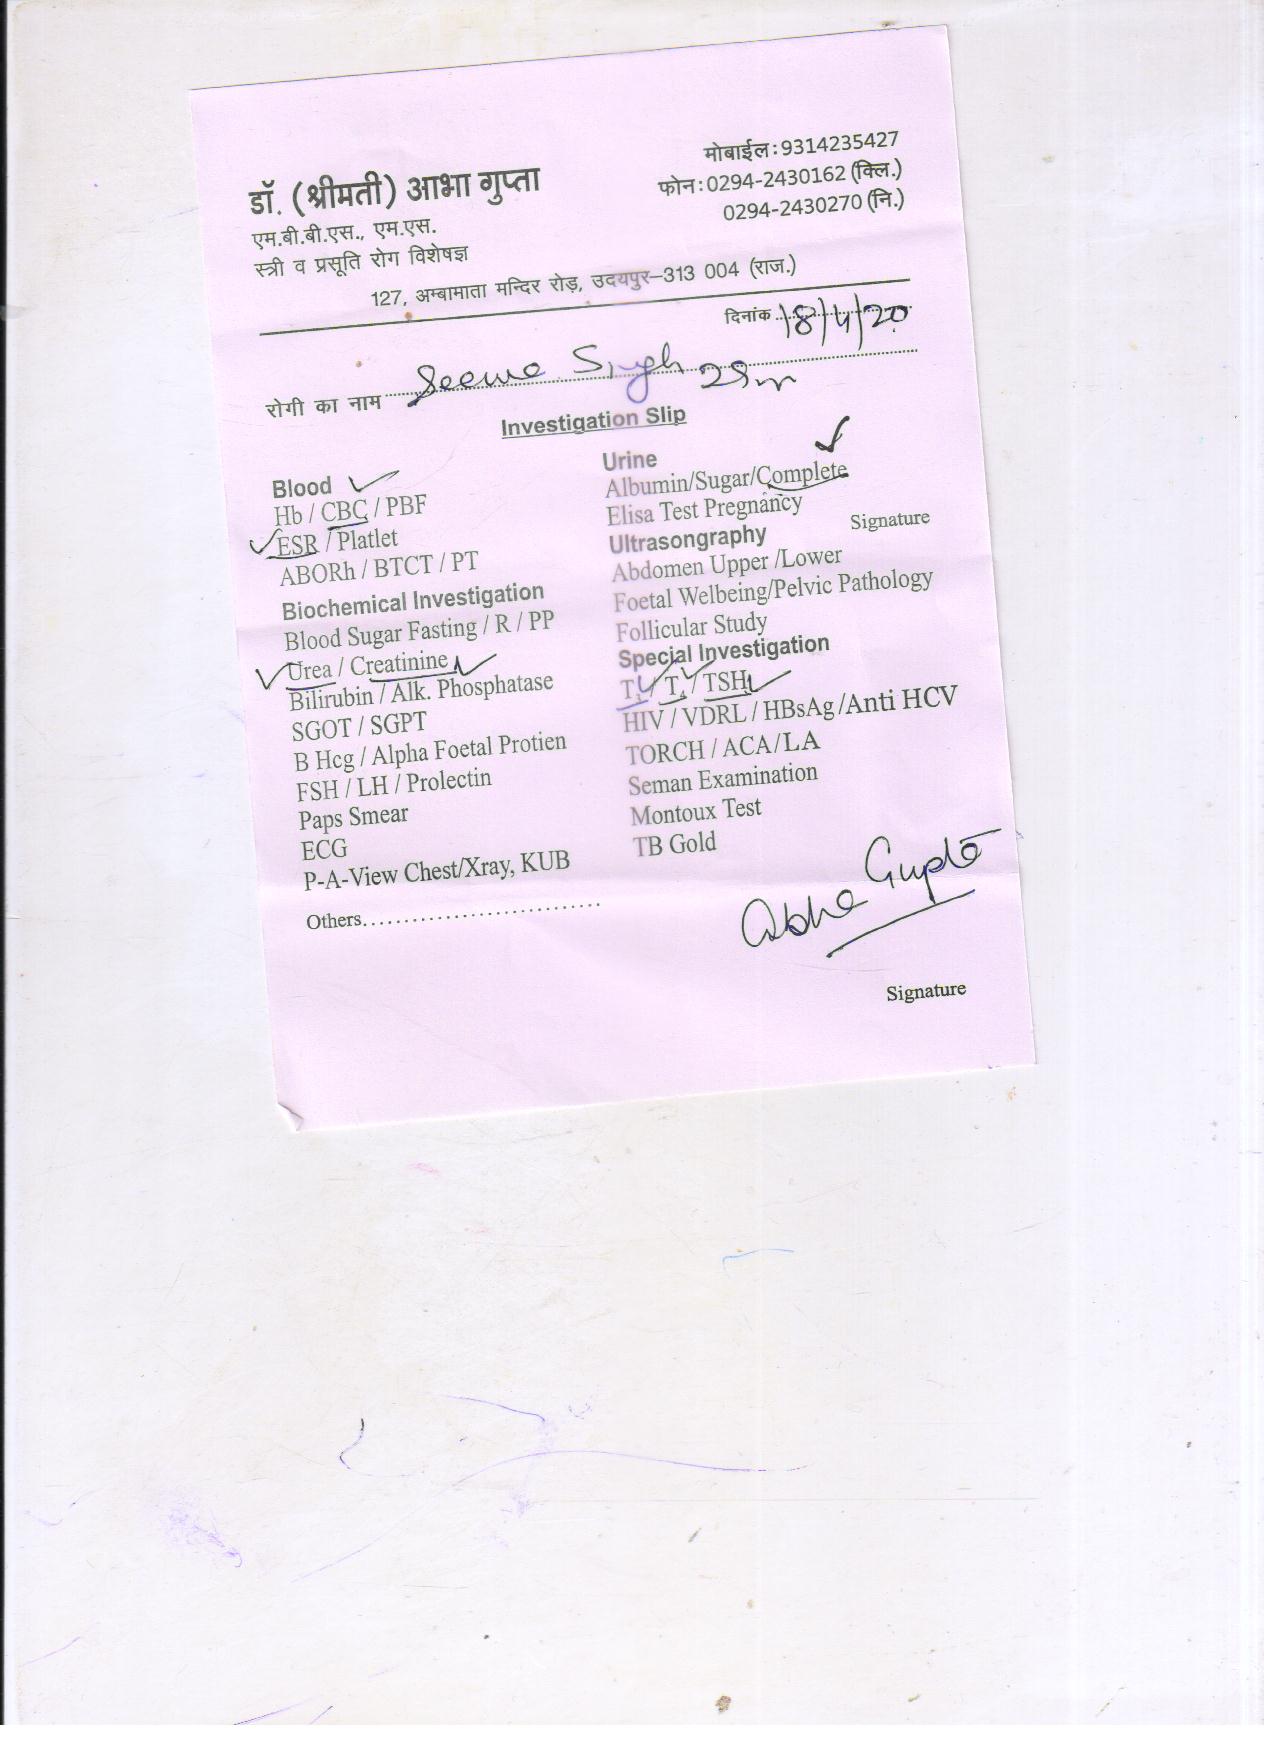 मोबाईल:9314235427
डॉ. (श्रीमती) आभा गुप्ता
फोन:0294-2430162 (क्लि.)
एम.बी.बी.एस., एम.एस.
0294-2430270 (नि.)
स्त्री व प्रसूति रोग विशेषज्ञ
127, अम्बामाता मन्दिर रोड़, उदयपुर–313 004 (राज.)
दिनांक 18/4/20
रोगी का नाम Seema Singh
Investigation Slip
Blood
Hb / CBC / PBF
ESR / Platlet
ABORh / BTCT / PT
Biochemical Investigation
Blood Sugar Fasting / R / PP
Urea / Creatinine
Bilirubin / Alk. Phosphatase
SGOT / SGPT
B Hcg / Alpha Foetal Protien
FSH / LH / Prolectin
Paps Smear
ECG
P-A-View Chest/Xray, KUB
Others...........................
Urine
Albumin/Sugar/Complete
Elisa Test Pregnancy
Signature
Ultrasongraphy
Abdomen Upper /Lower
Foetal Welbeing/Pelvic Pathology
Follicular Study
Special Investigation
T3 / T4 / TSH
HIV / VDRL / HBsAg /Anti HCV
TORCH / ACA/LA
Seman Examination
Montoux Test
TB Gold
Abha Gupta
Signature